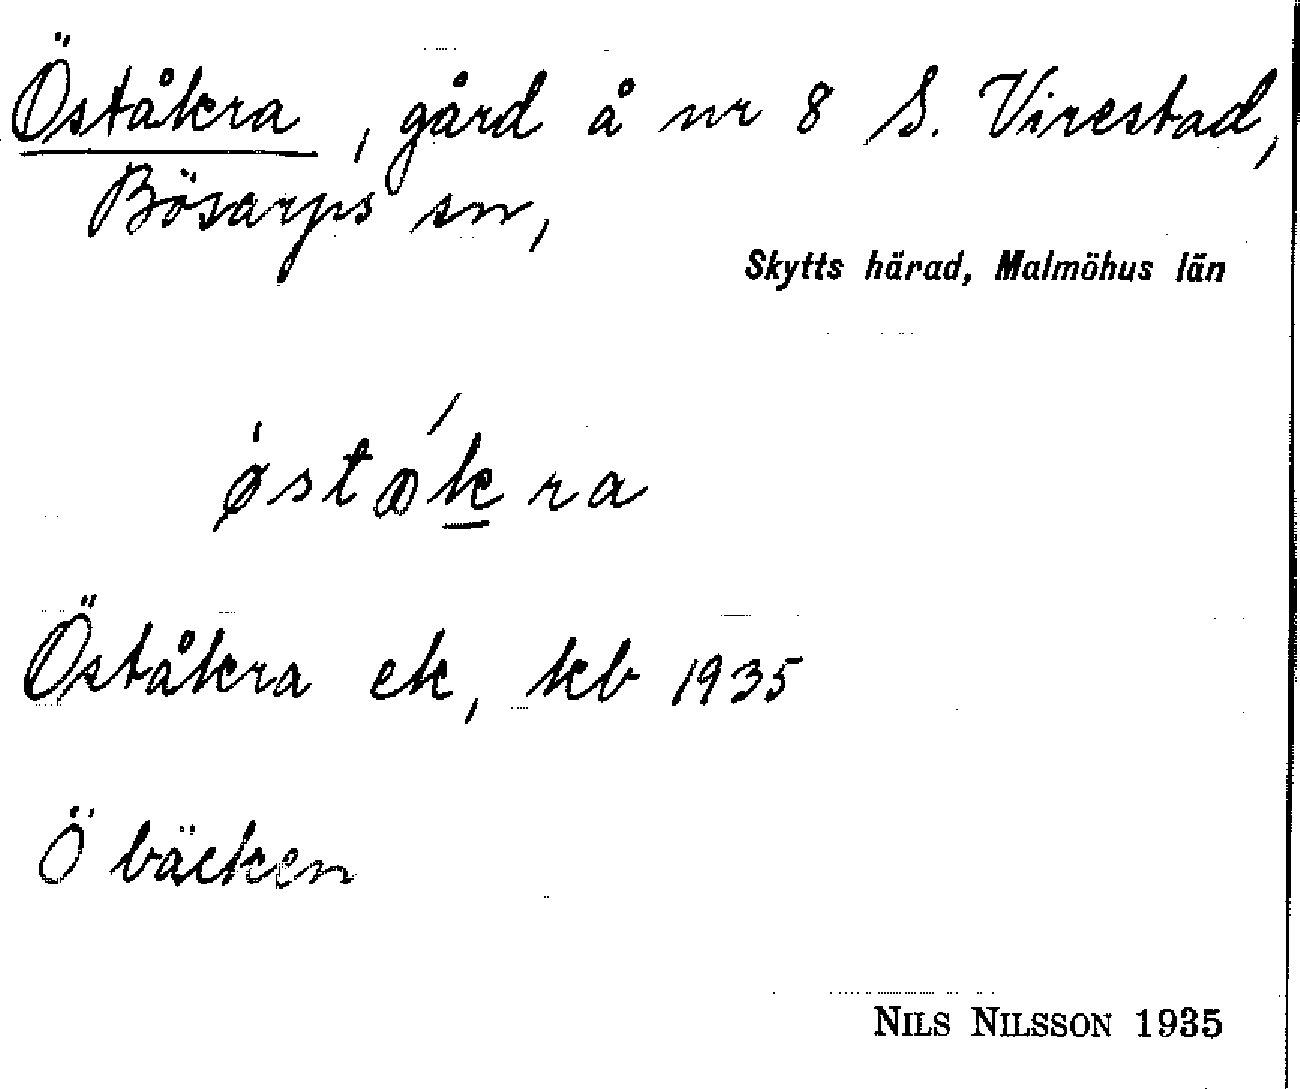 Öståkra, gård å nr 8 S. Virestad,
Bösarps sn,
Skytts härad, Malmöhus län
øståkra
Öståkra ek, kb 1935
Ö bäcken
NILS NILSSON 1935